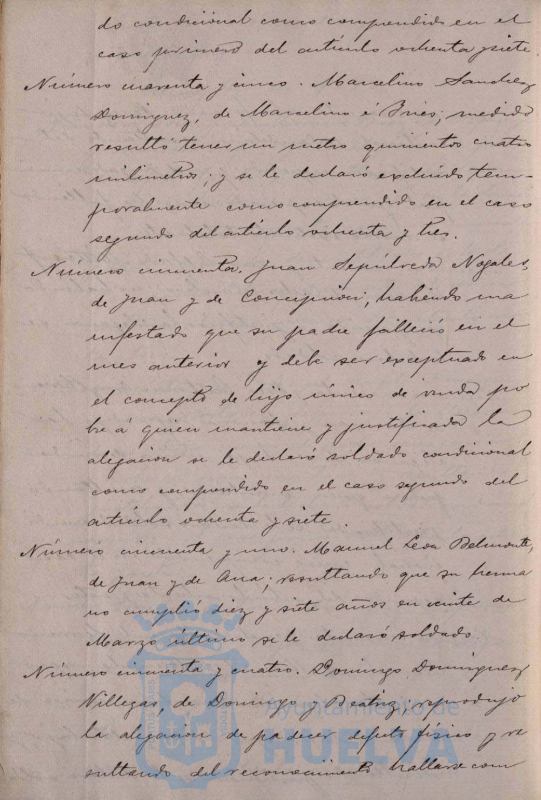 do condicional como comprendido en el
caso primero del artículo ochenta y siete
Número cuarenta y cinco. Marcelino Sanchez
Dominguez, de Marcelino é Ynes; medido
resultó tener un metro quinientos cuatro
milimetros; y se le declaró excluido tem-
poralmente como comprendido en el caso
segundo del artículo ochenta y tres.
Número cincuenta. Juan Sepúlveda Nogales,
de Juan y de Concepción, habiendo ma
nifestado que su padre falleció en el
mes anterior y debe ser exceptuado en
el concepto de hijo único de viuda po
bre á quien mantiene y justificada la
alegación se le declaró soldado condicional
como comprendido en el caso segundo del
artículo ochenta y siete.
Número cincuenta y uno. Manuel Leon Belmonte,
de Juan y de Ana; resultando que su herma
no cumplió diez y siete años en veinte de
Marzo último se le declaró soldado.
Número cincuenta y cuatro. Domingo Dominguez
Villegas, de Domingo y Beatriz; reprodujo
la alegación de padecer defecto físico y re
sultando del reconocimiento hallarse com
Ayuntamiento de
HUELVA